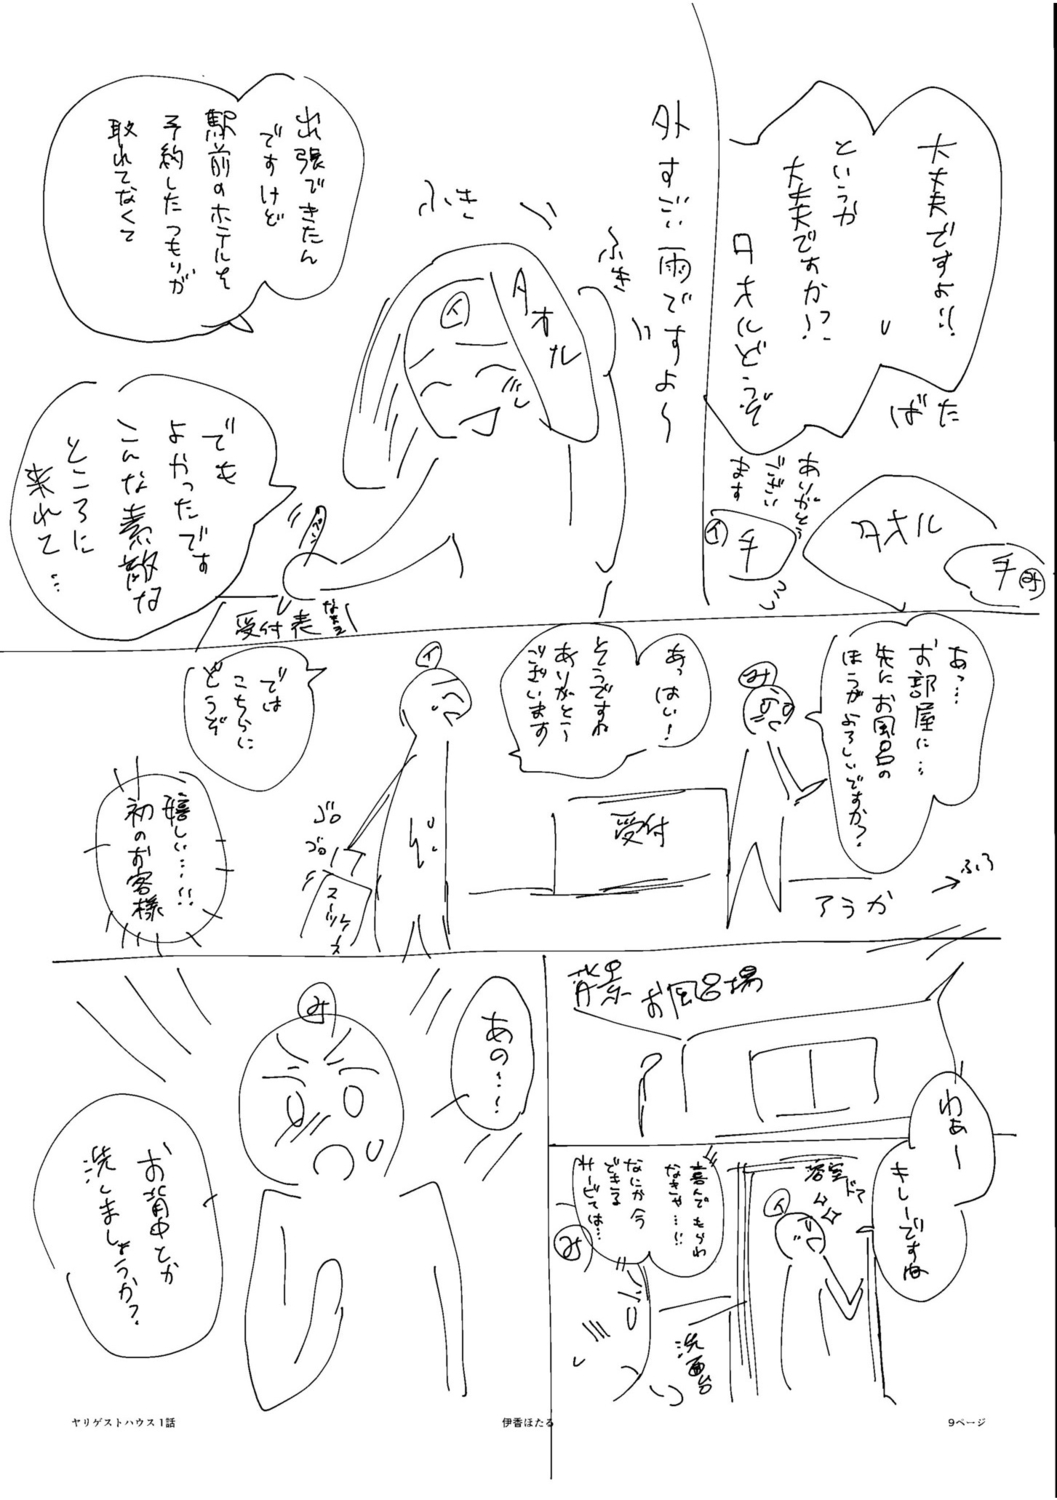 大丈夫ですよ!!
というか
大丈夫ですか!?
タオルどうぞ
ばた
タオル
手
ありがとう
ござい
ます
イ
手
外すごい雨ですよ〜
ふき
ふき
タオル
イ
出張できたん
ですけど
駅前のホテルを
予約したつもりが
取れてなくて
でも
よかったです
こんな素敵な
ところに
来れて…
ペン
受付表
あっ…
お部屋に…
先にお風呂の
ほうがよろしいですか?
み
あっはい!
そうですね
ありがとう
ございます
受付
ろうか
→ふろ
イ
では
こちらに
どうぞ
ゴロ
ゴロ
スーツケース
嬉しい…!!
初のお客様
背景 お風呂場
わぁー
キレーですね
浴室ドア
イ
喜んでもらわ
なきゃ…!!
なにか今
できる
サービスは…
み
洗面台
あの…!
み
お背中とか
洗しましょうか?
ヤリゲストハウス1話
伊香ほたる
9ページ